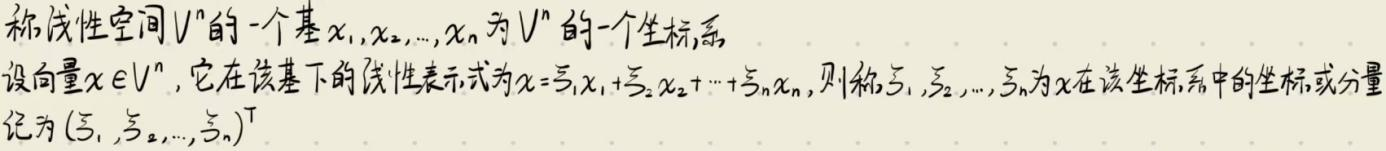 称线性空间Vⁿ的一个基x₁,x₂,…,xₙ为Vⁿ的一个坐标系
设向量x∈Vⁿ,它在该基下的线性表示式为x=ξ₁x₁+ξ₂x₂+…+ξₙxₙ,则称ξ₁,ξ₂,…,ξₙ为x在该坐标系中的坐标或分量
记为(ξ₁,ξ₂,…,ξₙ)ᵀ